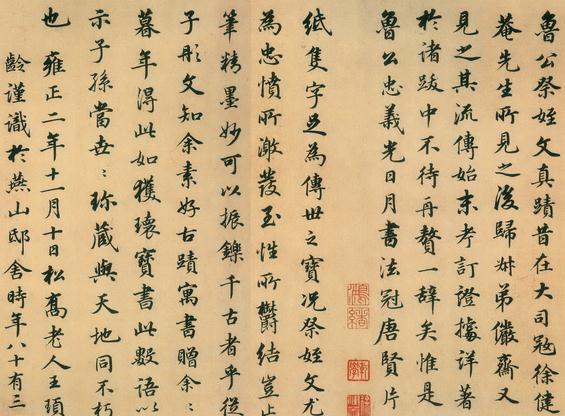 魯公祭姪文真蹟昔在大司寇徐健
菴先生所見之後歸叔弟儼齋又
見之其流傳始末考訂證據詳著
於諸跋中不待再贅一辭矣惟是
魯公忠義光日月書法冠唐賢片
紙隻字足為傳世之寶況祭姪文尤
為忠憤所激發至性所鬱結豈止
筆精墨妙可以振鑠千古者乎從
子彤文知余素好古蹟寓書贈余〻
暮年得此如獲瓌寶書此數語以
示子孫當世〻珍藏與天地同不朽
也 雍正二年十一月十日松髙老人王頊
齡謹識於燕山邸舍時年八十有三